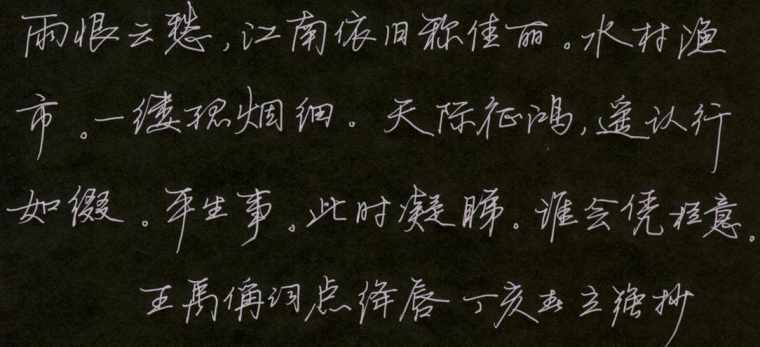 雨恨云愁,江南依旧称佳丽。水村渔
市。一缕孤烟细。天际征鸿,遥认行
如缀。平生事。此时凝睇。谁会凭栏意。
王禹偁词点绛唇 丁亥春立强抄